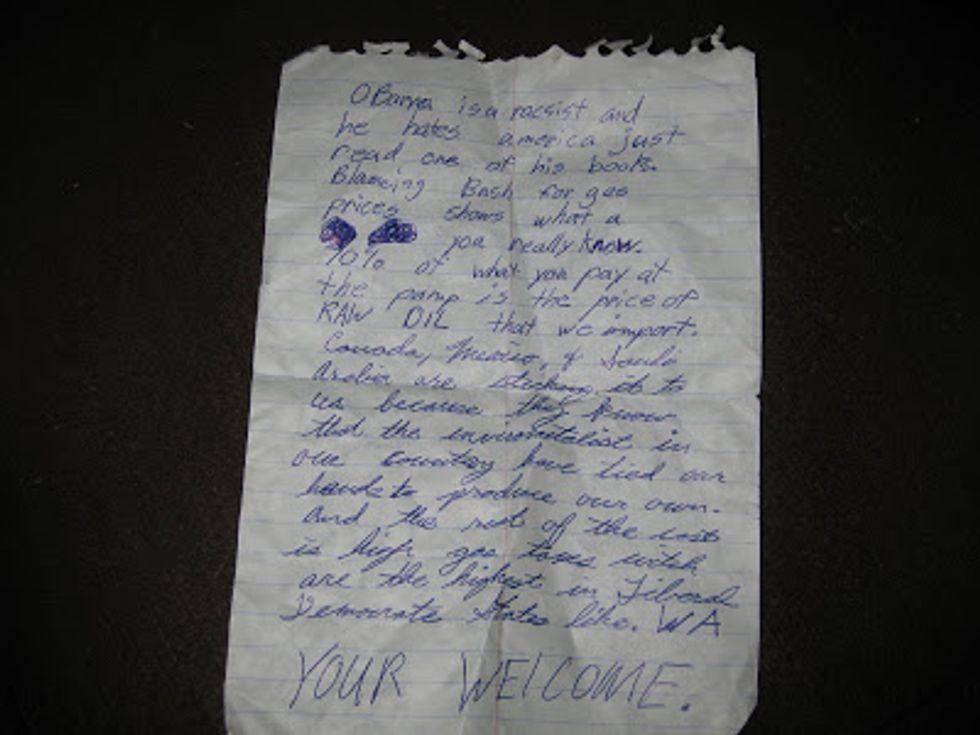 OBama is a racsist and
he hates america just
read one of his books.
Blameing Bush for gas
prices shows what a
you really know.
70% of what you pay at
the pump is the price of
RAW OIL that we import.
Canada, Mexico, & Saudi
Arabia are sticking it to
us because they know
that the enviromtalist in
our country have tied our
hands to produce our own.
and the rest of the cost
is high gas taxes witch
are the highest in Liberal
Democrate States like. WA
YOUR WELCOME.